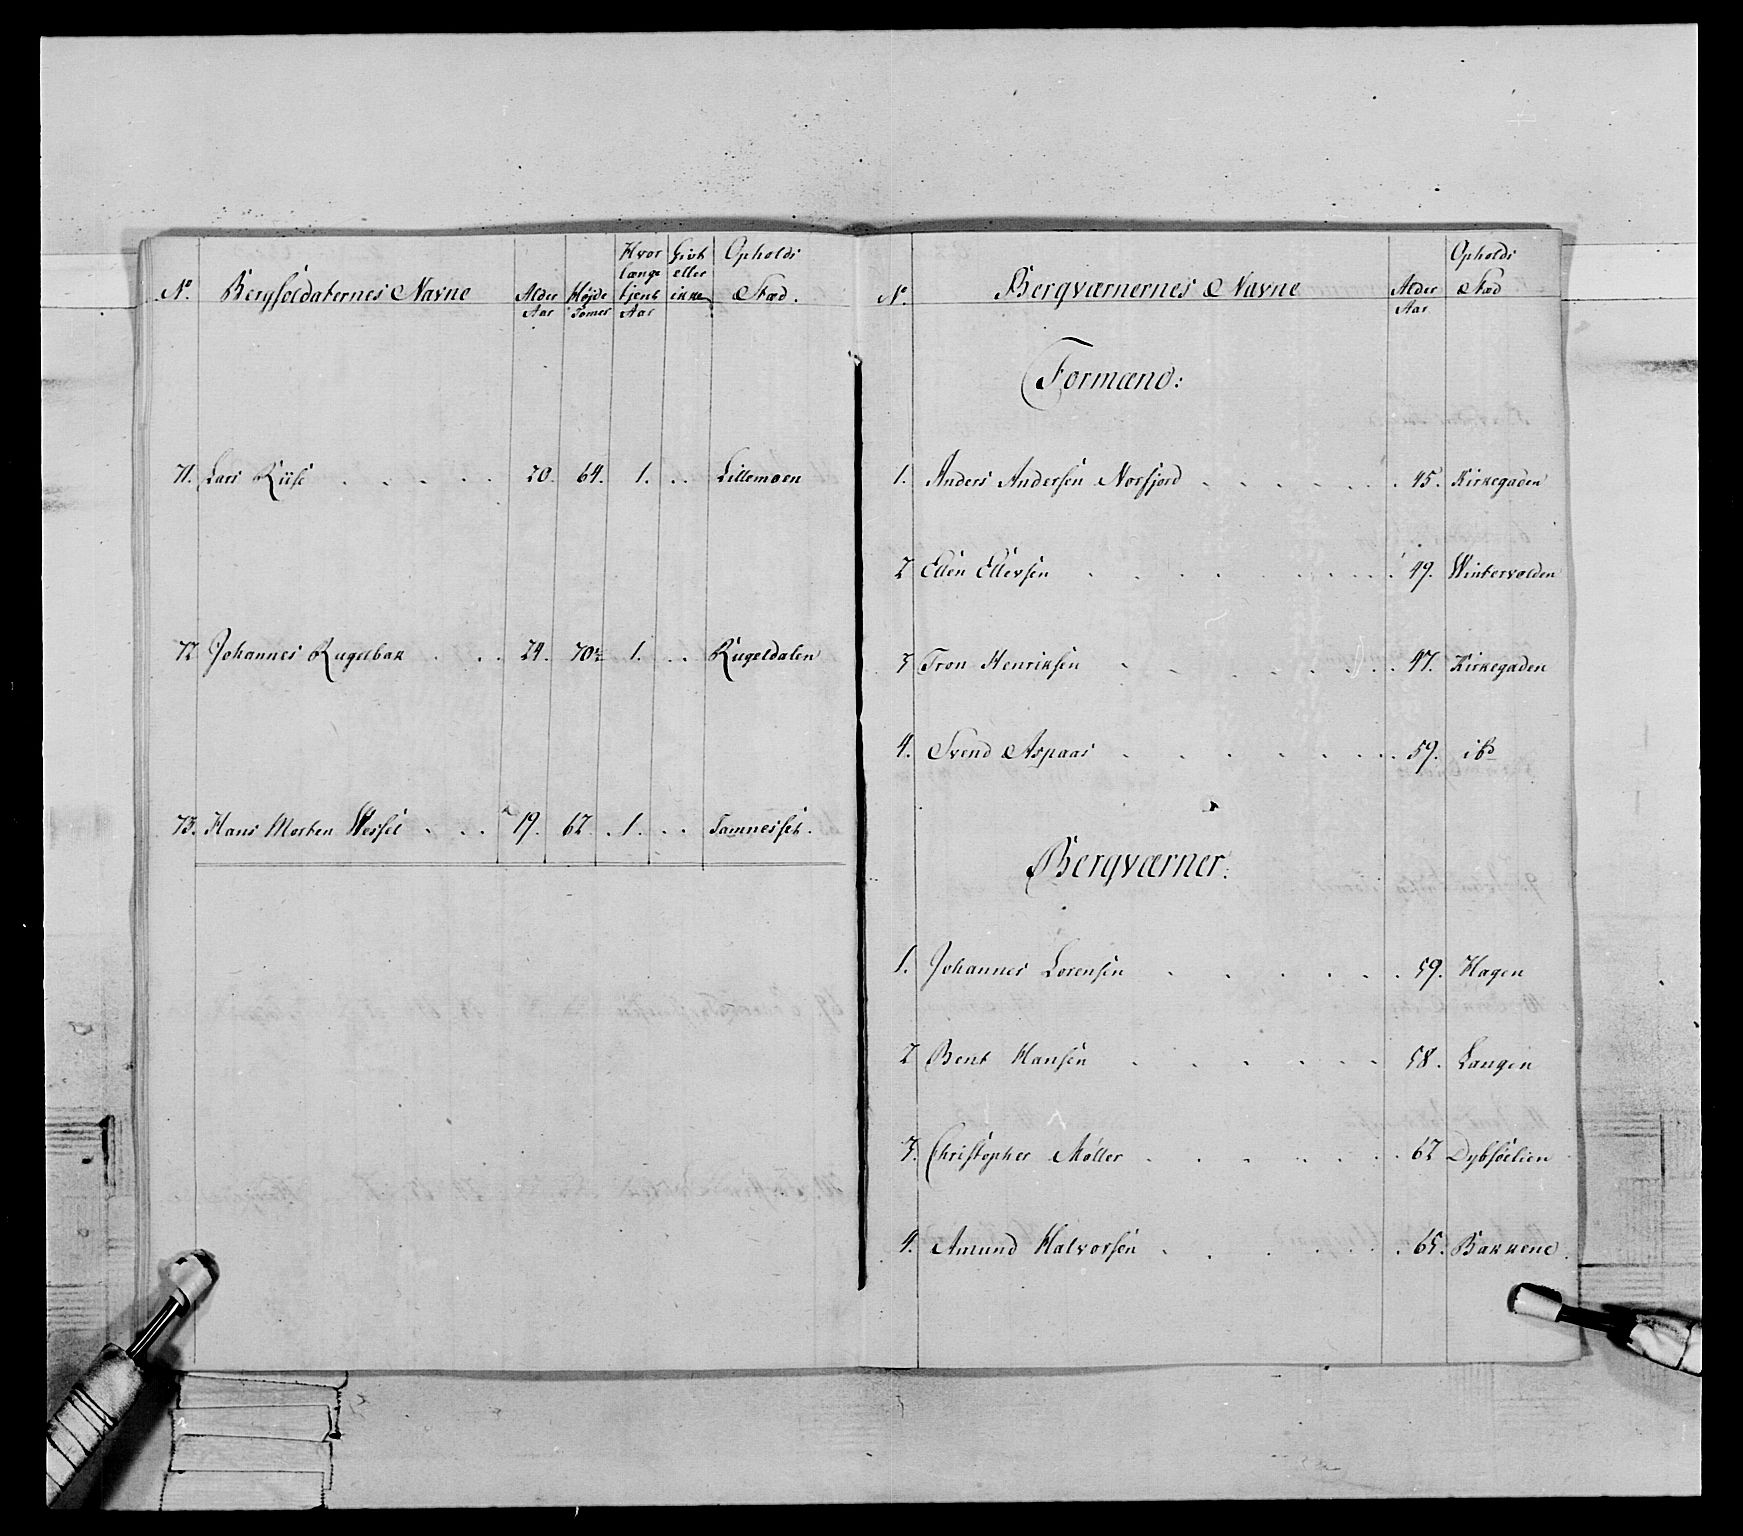 No. Bergsoldaternes Navne Alder Aar Højde Tomer Hvor længe tjent Aar Givt eller ikke Opholds Stæd.
71. Lars Riise . . . . . 20. 64. 1. . . Lillemoen
72 Johannes Rugelbak . . . 24. 70½ 1. . . Rugeldalen
73. Hans Morten Wessel . . . 19. 62. . 1. . . Tamnesset.
No. Bergværnernes Navne Alder Aar Opholds Stæd
Formænd:
1. Anders Andersen Norfjord . . . . . . . 45. Kirkegaden
2 Ellen Ellevsen . . . . . . . . 49. Wintervolden
3 Tron Henriksen . . . . . . . 47. Kirkegaden
4. Svend Aspaas . . . . . . . 59. ibd
Bergværner:
1. Johannes Lorensen . . . . . . 59. Hagen
2 Bent Hansen . . . . . . 58. Langen
3. Christopher Møller . . . . . . 62 Dybsøelien
4. Amund Halvorsen . . . . . . 65. Bakkene.